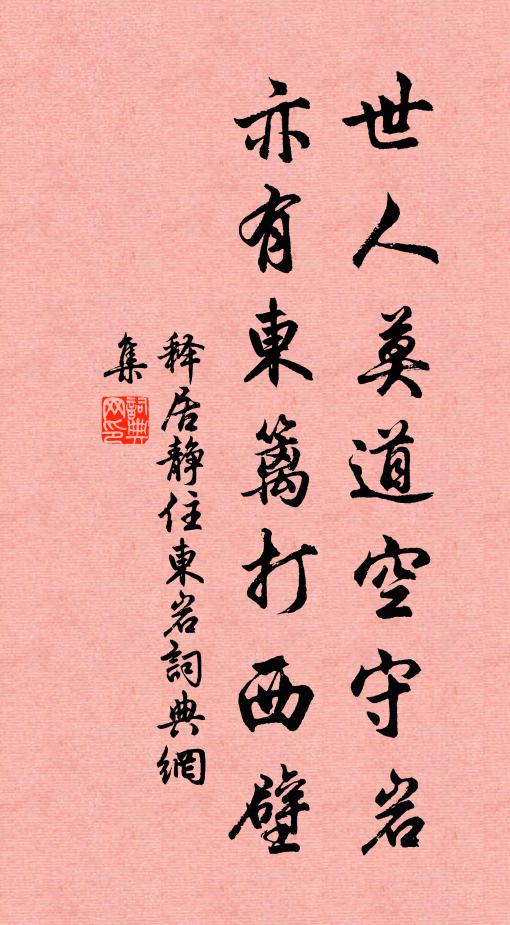 世人莫道空守岩
亦有東篱打西壁
释居静住東岩詞典網
集
詞典
网印